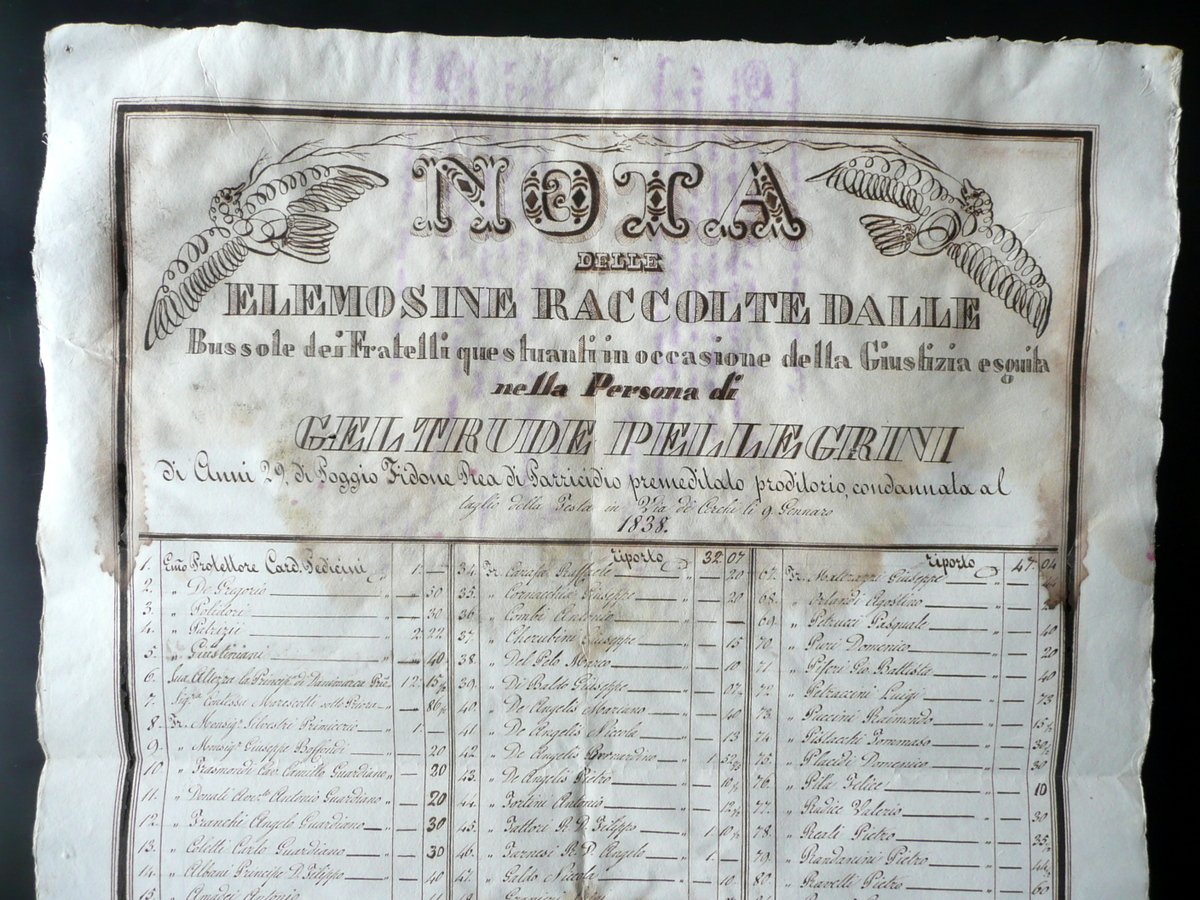 NOTA
DELLE
ELEMOSINE RACCOLTE DALLE
Bussole dei Fratelli questuanti in occasione della Giustizia esguita
nella Persona di
GELTRUDE PELLEGRINI
di Anni 29, di Poggio Fidone Rea di Parricidio premeditato proditorio, condannata al
taglio della Testa in Via de Cerchi li 9 Gennaro
1838.
1. Emo Protettore Card. Pedicini " 1. —
2. " De Gregorio — 50
3. " Polidori — 30
4. " Patrizii 2. 22
5. " Giustiniani — 40
6. Sua Altezza la Princip. di Danimarca 12. 15
7. Sig.a Contessa Marescotti sotto Priora — 86
8. Fr. Monsigr. Silvestri Primicerio 1. —
9. " Monsigr. Giuseppe — 20
10. " Frasmondi Cav. Camillo Guardiano — 20
11. " Donati Avv.to Antonio Guardiano — 20
12. " Franchi Angelo Guardiano — 30
13. " Coletti Carlo Guardiano — 30
14. " Albani Principe D. Filippo — 40
15. " Amadei Antonio
riporto 32 07
34. Fr. Raffaele — 20
35. " Cornacchia Giuseppe — 20
36. " Combi Antonio
37. " Cherubini Giuseppe — 15
38. " Del Pelo Marco — 10
39. " Di Baldo Giuseppe — 07
40. " De Angelis Mariano — 40
41. " De Angelis Nicola — 13
42. " De Angelis Bernardino 1.
43. " De Angelis Pietro — 10
44. " Fortini Antonio — 12
45. " Fattori R. D. Filippo 1. 10
46. " Farnesi R. P. Angelo 1. —
47. " Galdo Niccola — 10
riporto 47. 04
67. Fr. Giuseppe
68. " Orlandi Agostino
69. " Petrucci Pasquale — 40
70. " Domenico — 20
71. " Gio Battista — 40
72. " Petraccini Luigi — 73
73. " Puccini Raimondo — 15
74. " Pistacchi Tommaso — 30
75. " Placidi Domenico — 30
76. " Pila Felice — 10
77. " Radice Valerio — 30
78. " Reali Pietro — 35
79. " Randanini Pietro
80. " Ravelli Pietro — 60